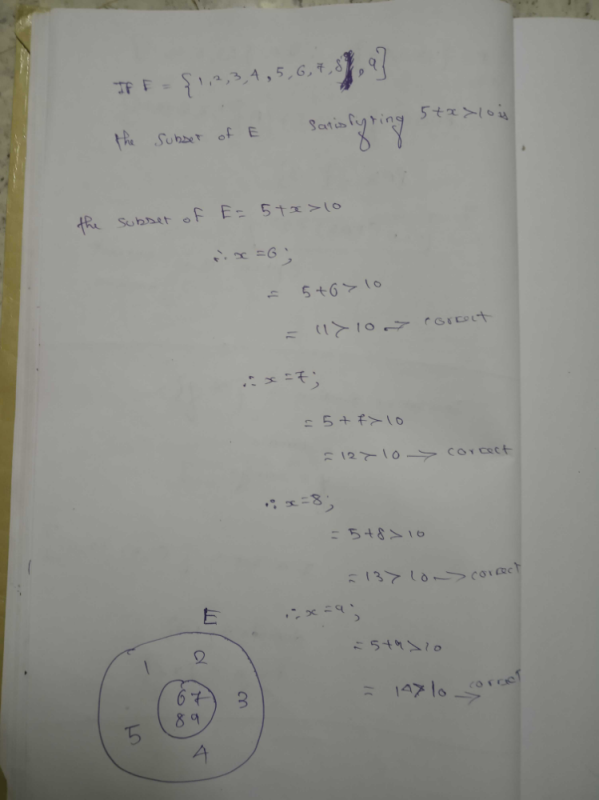 If F = {1,2,3,4,5,6,7,8,9}
the subset of E satisfying 5+x>10 is
the subset of E = 5+x>10
∴ x=6;
= 5+6>10
= 11>10 → correct
∴ x=7;
= 5+7>10
= 12>10 → correct
∴ x=8;
= 5+8>10
= 13>10 → correct
∴ x=9;
= 5+9>10
= 14>10 → correct
E
1 2
6 7 3
8 9
5 4